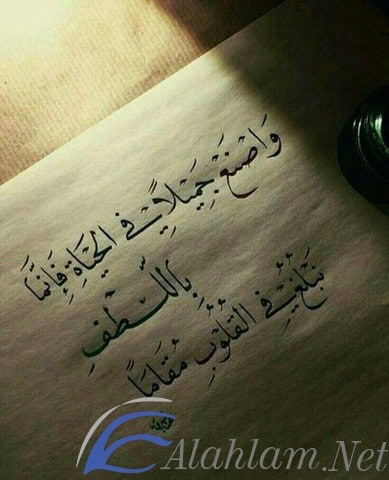 وَاصْنَعْ جَمِيلًا فِي الْحَيَاةِ فَإِنَّمَا
بِاللُّطْفِ
نَبْلُغُ فِي الْقُلُوبِ مُقَامَا
Alahlam.Net